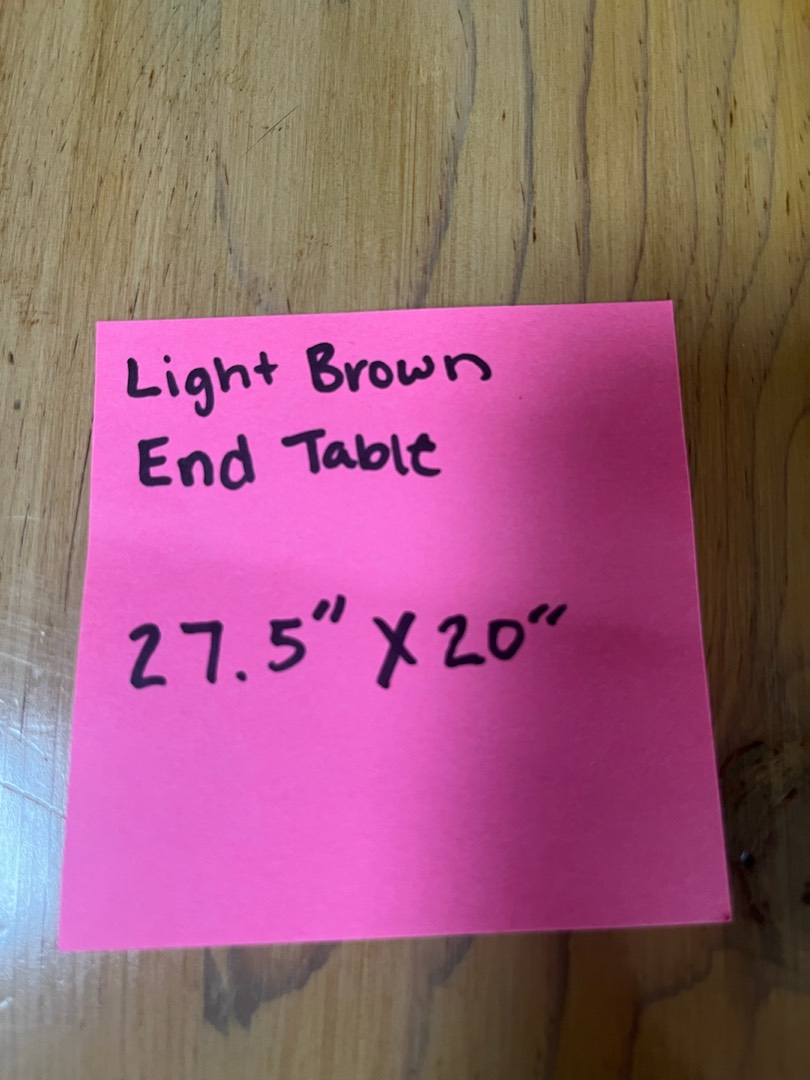 Light Brown
End Table
27.5" X 20"